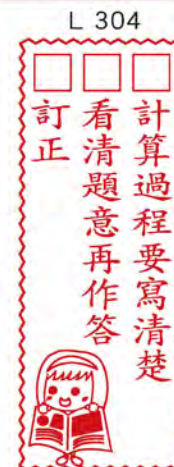 L 304
計算過程要寫清楚
看清題意再作答
訂正